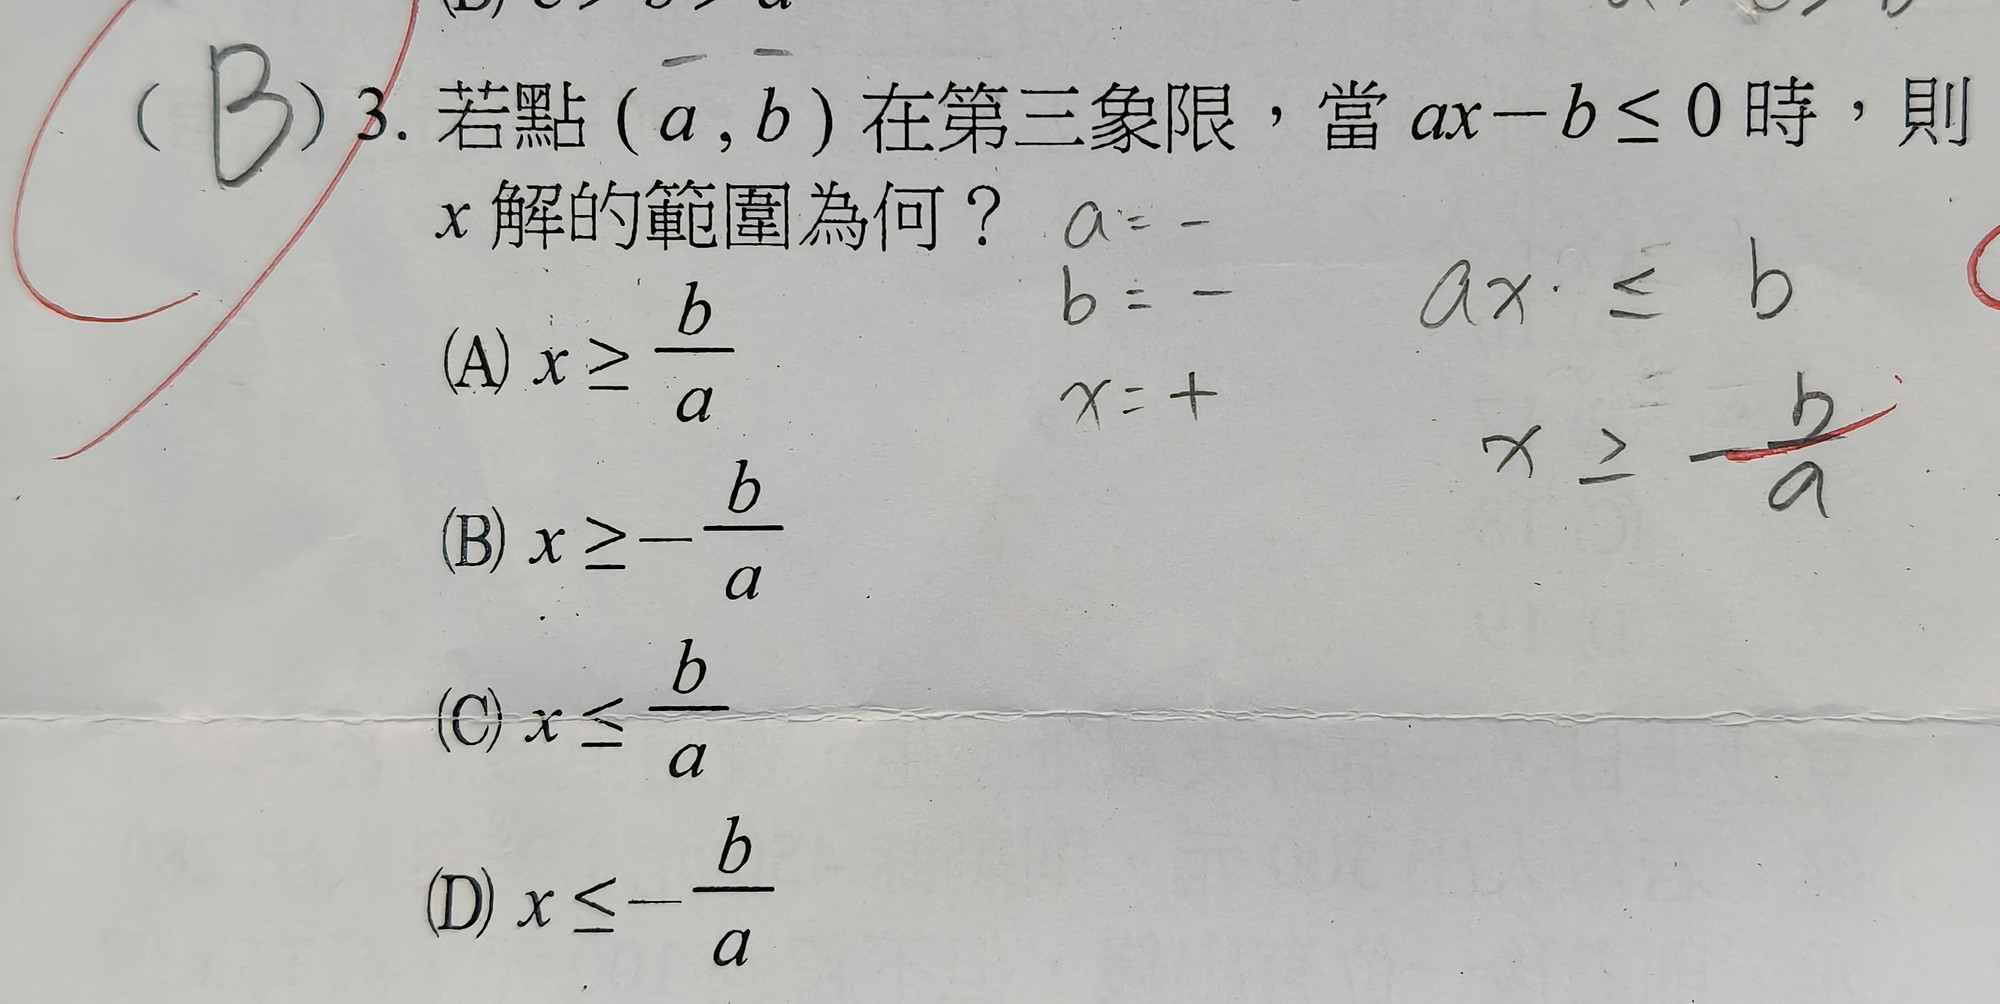 (B) 3. 若點(a,b)在第三象限,當ax-b≤0時,則
x解的範圍為何?
a=-
b=-
x=+
ax≤b
x≥-b/a
(A) x≥b/a
(B) x≥-b/a
(C) x≤b/a
(D) x≤-b/a